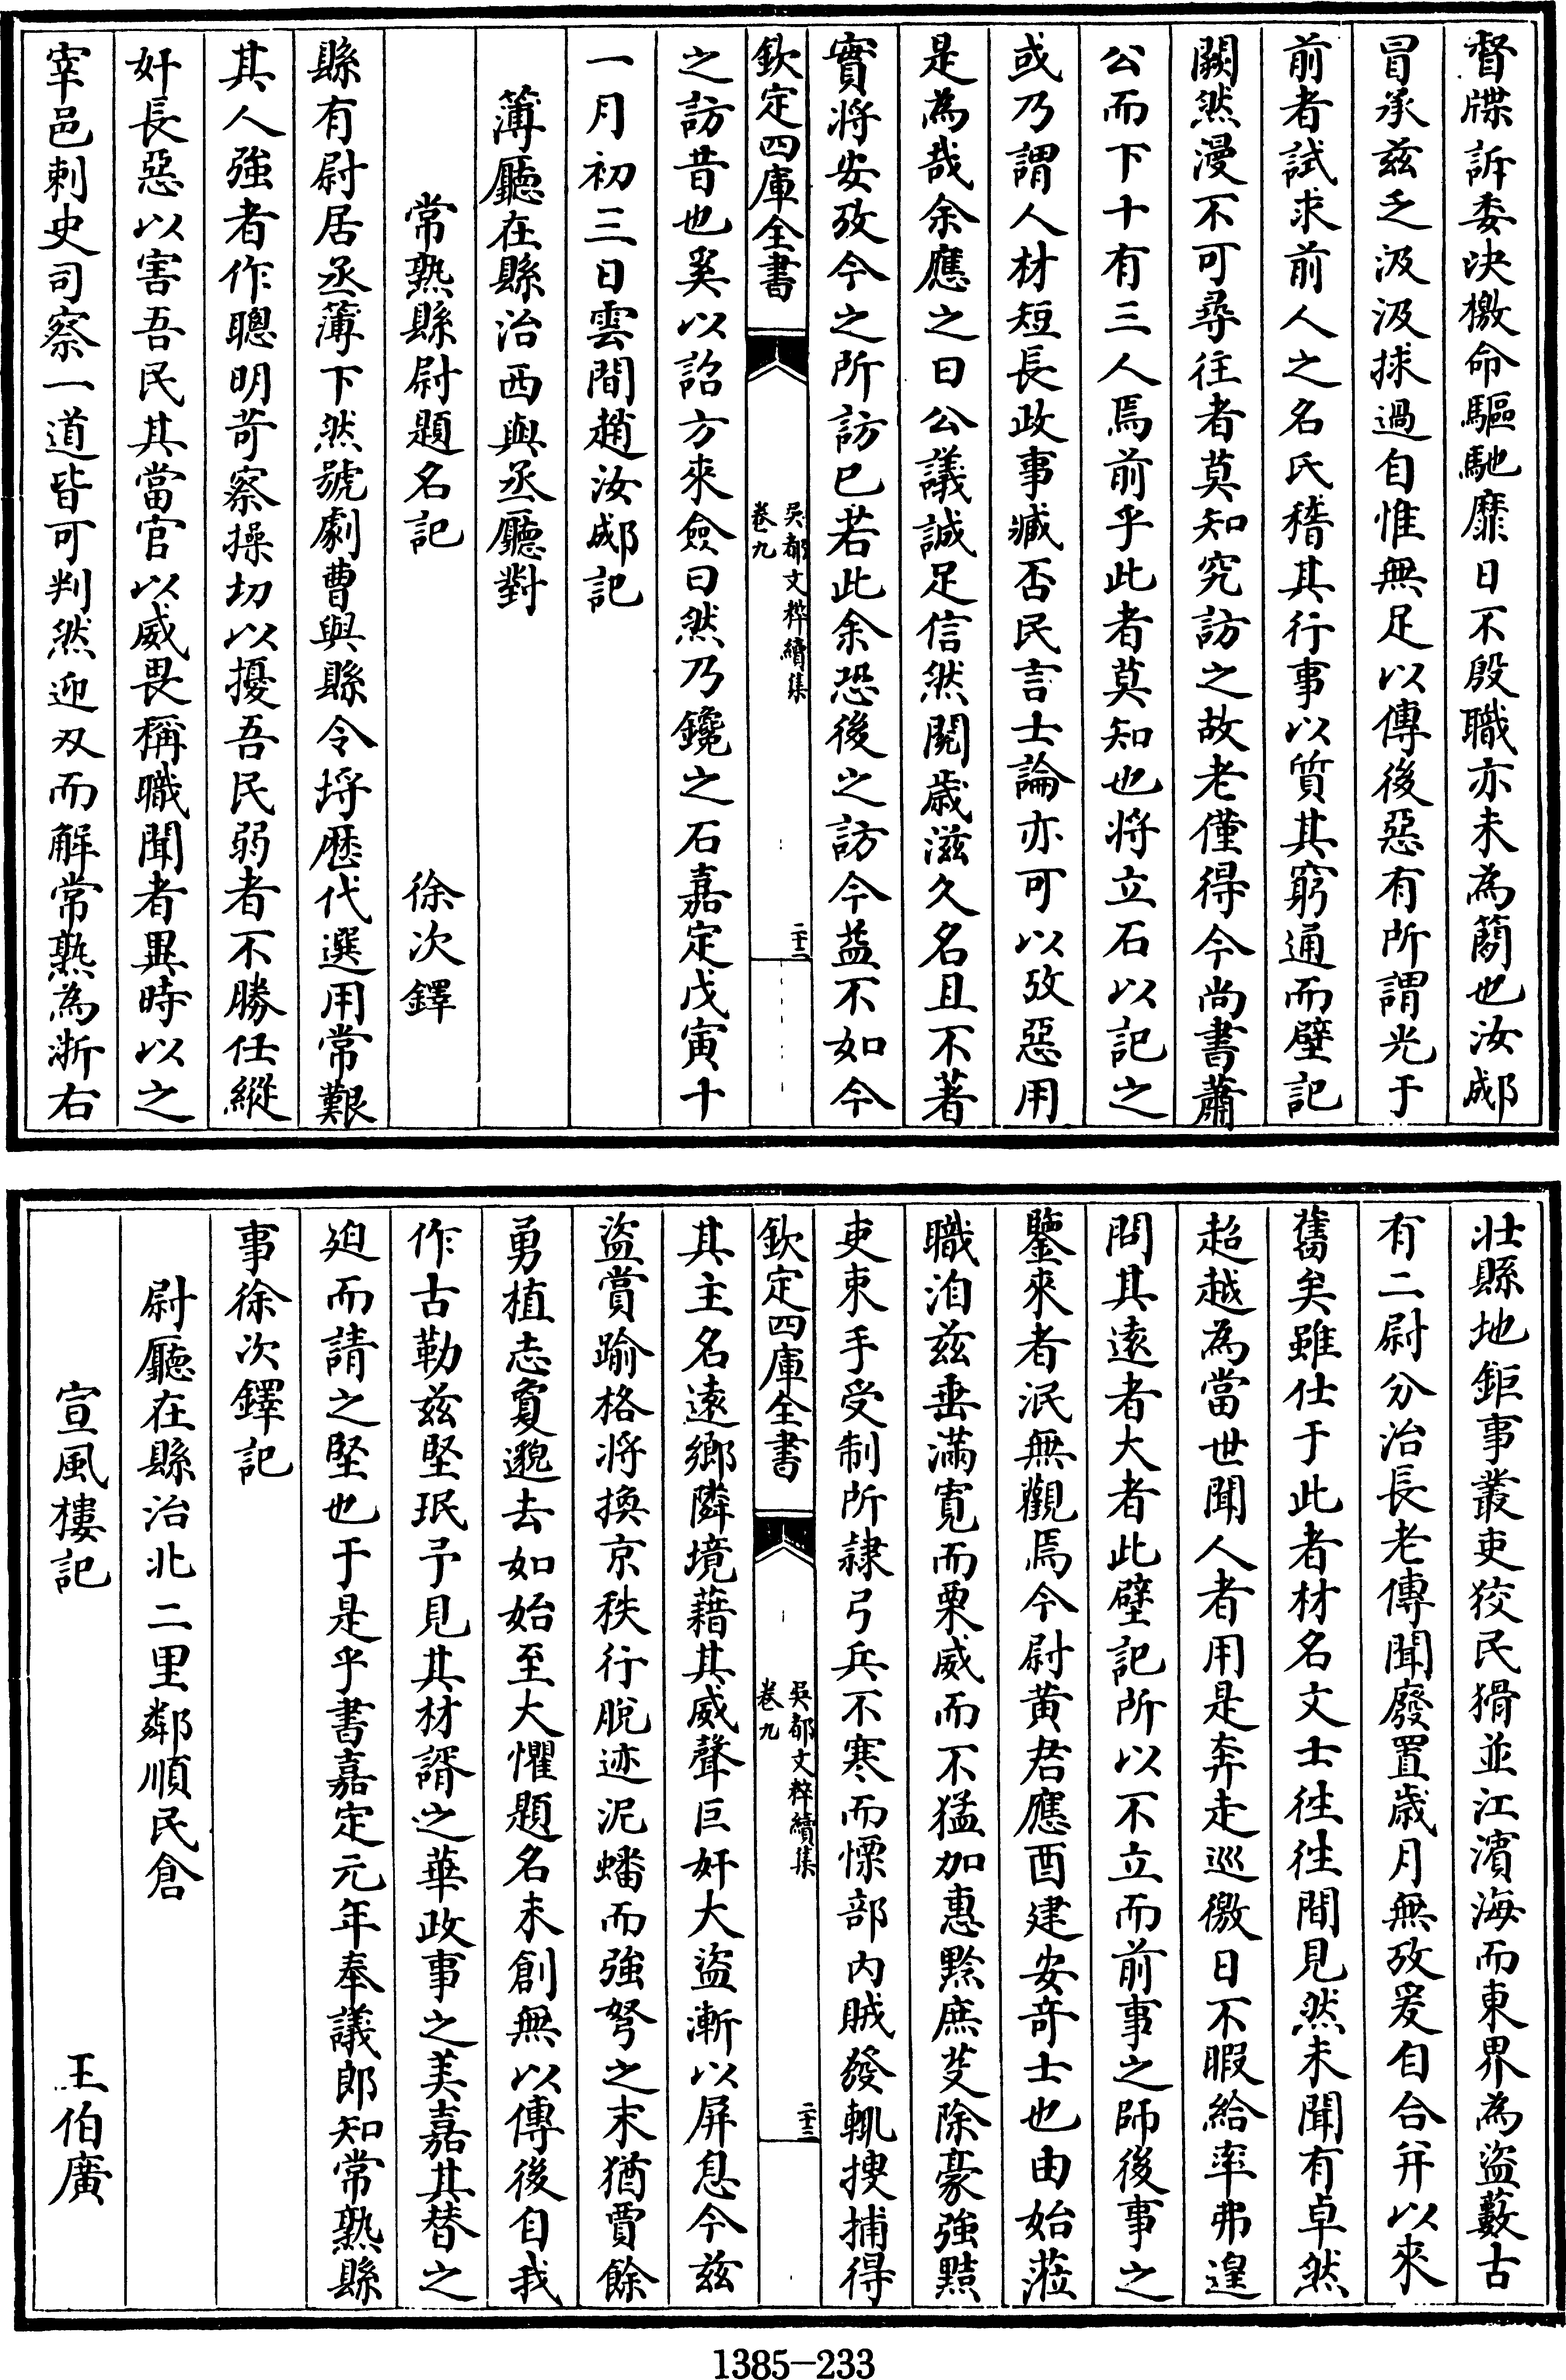 督牒訴委決檄命驅馳靡日不殷職亦未為簡也汝郕
冒承兹乏汲汲捄過自惟無足以傳後惡有所謂光于
前者試求前人之名氏稽其行事以質其窮通而壁記
闕然漫不可尋往者莫知究訪之故老僅得今尚書蕭
公而下十有三人焉前乎此者莫知也将立石以記之
或乃謂人材短長政事臧否民言士論亦可以攷惡用
是為哉余應之曰公議誠足信然閲歲滋久名且不著
實将安攷今之所訪已若此余恐後之訪今益不如今
欽定四庫全書
吳都文粹續集
卷九
二十二
之訪昔也奚以詔方來僉曰然乃鑱之石嘉定戊寅十
一月初三日雲間趙汝郕記
簿廳在縣治西與丞廳對
常熟縣尉題名記
徐次鐸
縣有尉居丞簿下然號劇曹與縣令埓歴代選用常艱
其人強者作聰明苛察操切以擾吾民弱者不勝任縱
奸長惡以害吾民其當官以威畏稱職聞者異時以之
宰邑刺史司察一道皆可判然迎刃而解常熟為浙右
壮縣地鉅事叢吏狡民猾並江濵海而東界為盜藪古
有二尉分治長老傳聞廢置歲月無攷爰自合并以來
舊矣雖仕于此者材名文士徃徃間見然未聞有卓然
超越為當世聞人者用是奔走巡徼日不暇給率弗遑
問其逺者大者此壁記所以不立而前事之師後事之
鑒來者泯無觀焉今尉黄君應酉建安竒士也由始蒞
職洎兹垂滿寛而栗威而不猛加惠黔庶芟除豪強黠
吏束手受制所隷弓兵不寒而慄部内賊發輒搜捕得
欽定四庫全書
吳都文粹續集
卷九
二十三
其主名逺鄉隣境藉其威聲巨奸大盜漸以屏息今兹
盜賞踰格将換京秩行脫迹泥蟠而強弩之末猶賈餘
勇植志夐邈去如始至大懼題名未創無以傳後自我
作古勒兹堅珉予見其材諝之華政事之美嘉其替之
廹而請之堅也于是乎書嘉定元年奉議郎知常熟縣
事徐次鐸記
尉廳在縣治北二里鄰順民倉
宣風樓記
王伯廣
1385-233